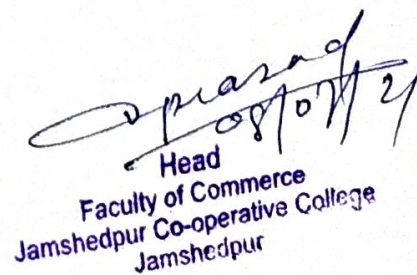 prasad
08/07/21
Head
Faculty of Commerce
Jamshedpur Co-operative College
Jamshedpur